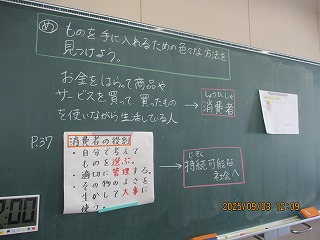 め ものを手に入れるための色々な方法を
見つけよう。
お金をはらって商品や
サービスを買って、買ったもの
を使いながら生活している人
しょうひしゃ
消費者
P.37
消費者の役割
・自分で考えて
ものを選ぶ。
・適切に管理する。
・その物のよさを
生かして大事に
使う。
じぞく
持続可能な
社会へ
2:00
2025/09/03 12:09